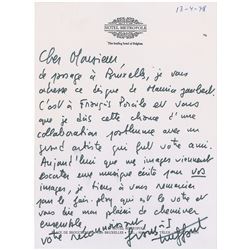 HOTEL METROPOLE
13-4-78
Cher Monsieur,
de passage à Bruxelles, je vous
adresse ce disque de Maurice Jaubert.
C'est à François Porcile et vous
que je dois cette chance d'une
collaboration posthume avec un
grand artiste qui fut votre ami.
Aujourd'hui que mes images viennent
escorter une musique écrite pour vos
images, je tiens à vous remercier
pour le fair-play qui est le votre et vous
dire mon plaisir de cheminer
ensemble.
votre
françois
truffaut